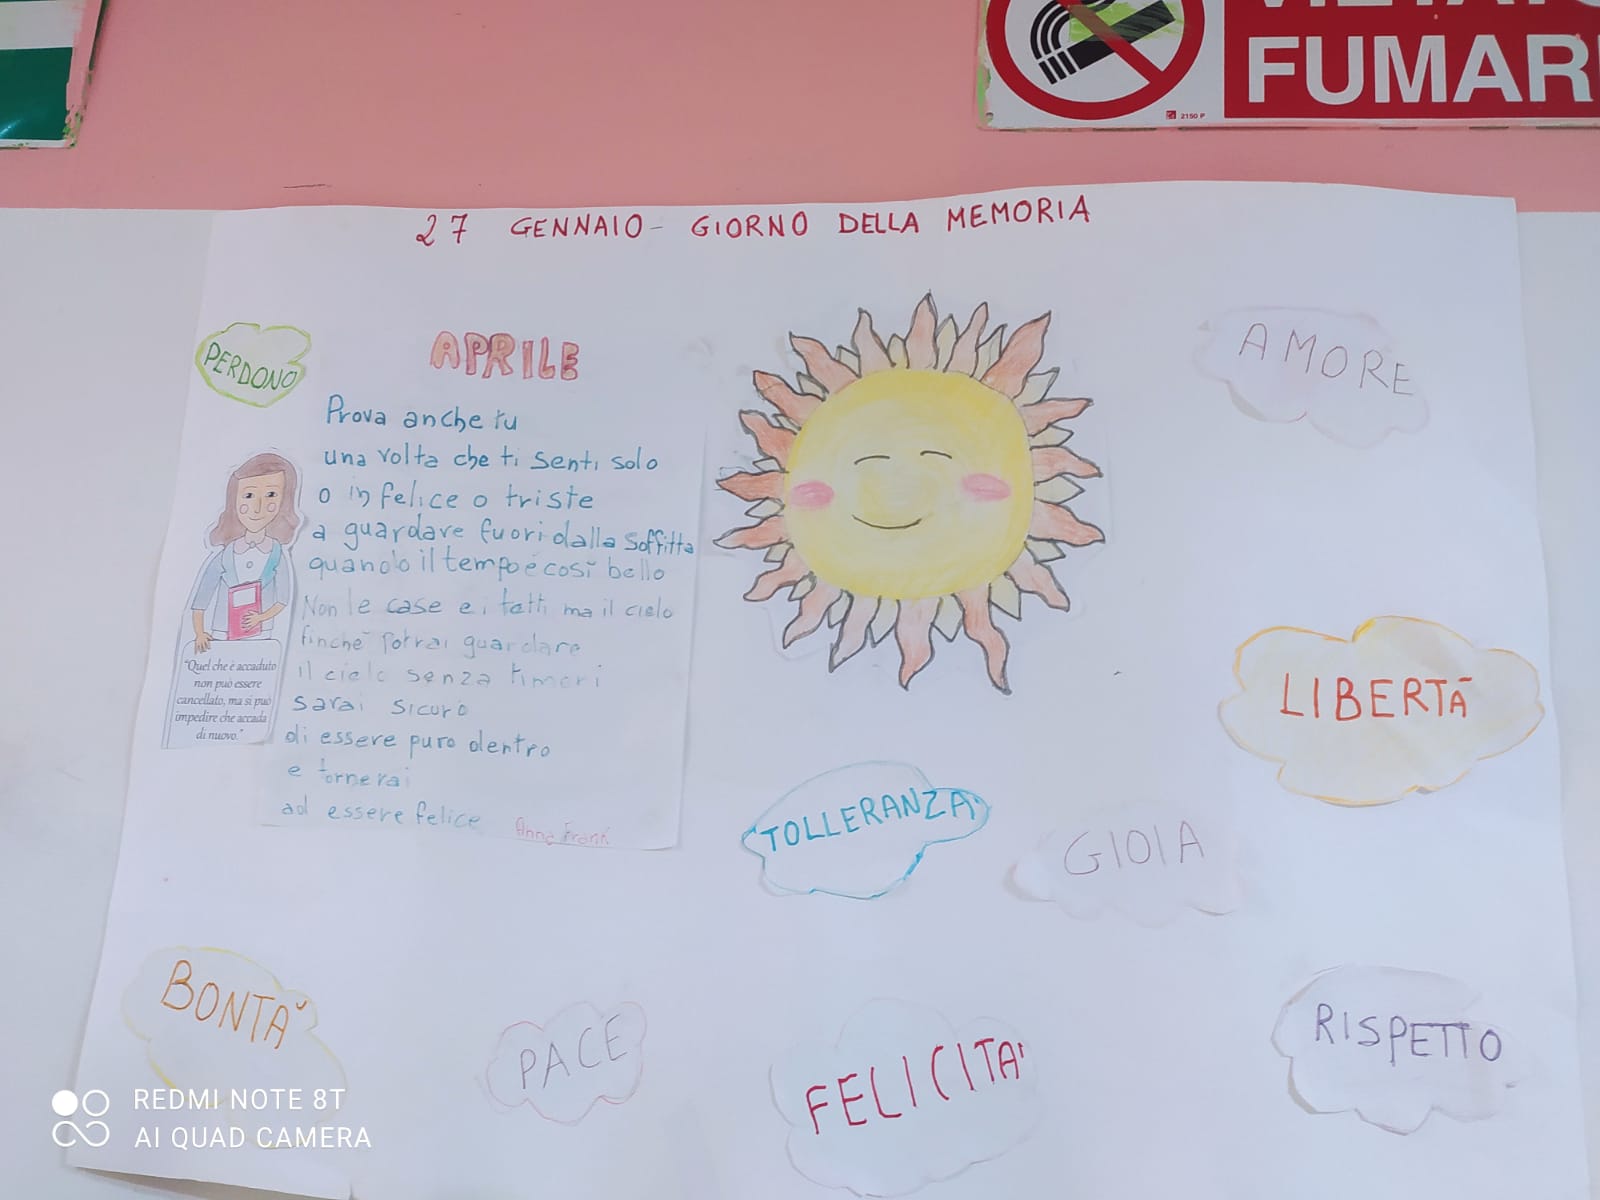 FUMAR
2150 P
27 GENNAIO - GIORNO DELLA MEMORIA
PERDONO
APRILE
Prova anche tu
una volta che ti senti solo
o infelice o triste
a guardare fuori dalla soffitta
quando il tempo è così bello
Non le case e i tetti ma il cielo
finchè potrai guardare
il cielo senza timori
sarai sicuro
di essere puro dentro
e tornerai
ad essere felice
Anna Frank
"Quel che è accaduto
non può essere
cancellato, ma si può
impedire che accada
di nuovo."
AMORE
LIBERTÀ
TOLLERANZA
GIOIA
BONTA'
PACE
FELICITA'
RISPETTO
REDMI NOTE 8T
AI QUAD CAMERA